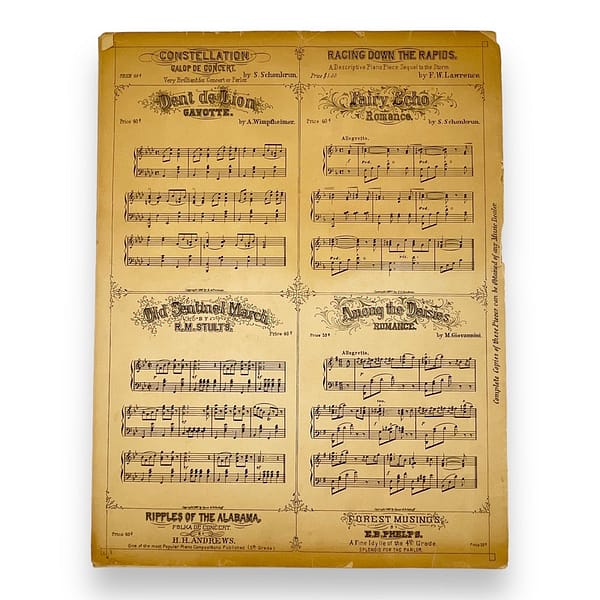 CONSTELLATION
GALOP DE CONCERT.
PRICE 60¢ by S. Schonbrun.
Very Brilliant for Concert or Parlor
RACING DOWN THE RAPIDS.
A Descriptive Piano Piece. Sequel to the Storm.
Price $1.00 by F. W. Lawrence
Dent de Lion
GAVOTTE.
Price 40¢ by A. Wimpfheimer.
Fairy Echo
Romance.
Price 40¢ by S. Schonbrun.
Allegretto.
Old Sentinel March
BY
R. M. STULTS. Price 40¢
Among the Daisies
ROMANCE.
Price 35¢ by M. Giovannini.
Allegretto.
Complete Copies of these Pieces can be Obtained of any Music Dealer
RIPPLES OF THE ALABAMA,
POLKA DE CONCERT.
Price 60¢
H. H. ANDREWS.
One of the most Popular Piano Compositions Published. (5th Grade.)
FOREST MUSINGS
BY
E. B. PHELPS.
A Fine Idylle of the 4th Grade.
SPLENDID FOR THE PARLOR.